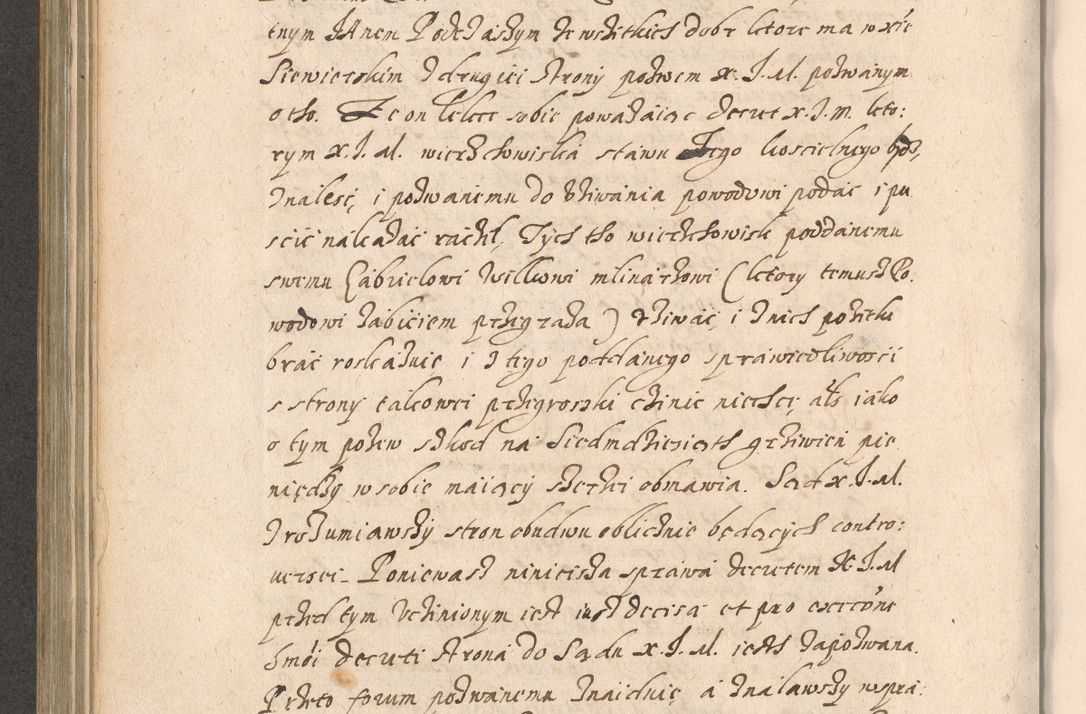 tnym Panem Podczaszym ze wszitkich dobr ktore ma w xie
Siewierskim z drugiei strony pozwem X. J. M. pozwanym
o tho. Ze on lekce sobie poważaiąc decret X. J. M. kto:
rym X. J. M. wierzchowiska stawu Jego koscielnego bydz
znalesc, i pozwanemu do vżiwania powodowi podac i pu
scić nakazać raczil, Tych tho wierzchowisk poddanemu
swemu Gabrielowi Wilkowi mlinarzowi (ktory temusz Po.
wodowi zabiciem przegraża) vżiwać, i z nich pożitki
brać roskazuie, i z tego poddanego sprawiedliwosci
s strony takowei przegroszki czinic niechce, ale iako
o tym pozew szkod na Siedmdziesiąth grziwien pie
niędzy w sobie maiący szerzei obmawia. Sąd X. J. M.
zrozumiawszy stron obudwu oblicznie będących contro:
uersei. Ponieważ ninieisza sprawa decretem X. J. M
przed tym vczinionym iest iusz decisa et pro execucõne
decreti strona do Sądu X. J. M. iesth zapozwana.
Przeto forum pozwanemu znaiduie, a znalawszy w spra: